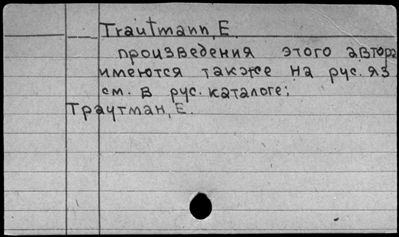 Trautmann, E.
произведения этого автора
имеются также на рус. яз
см. в рус. каталоге:
Траутман, Е.